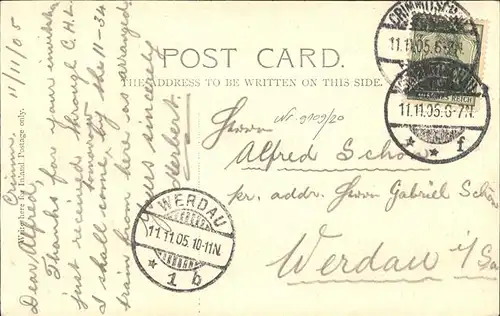 POST CARD.
THE ADDRESS TO BE WRITTEN ON THIS SIDE.
Write here for Inland Postage only.
Crimm. 11/11/05
Dear Alfred,
Thanks for your invitation
just received through C.H.L.
I shall come, by the 11-34
tomorrow
train from here as arranged.
Yours sincerely
Herbert.
Nr. 9109/20
Herrn
Alfred Schön
pr. addr. Herrn Gabriel Schön
Werdau i/Sa
CRIMMITSCHAU
11.11.05.6-7N.
11.11.05.6-7N.
* * f
REICH
WERDAU
11.11.05.10-11N.
* 1 b